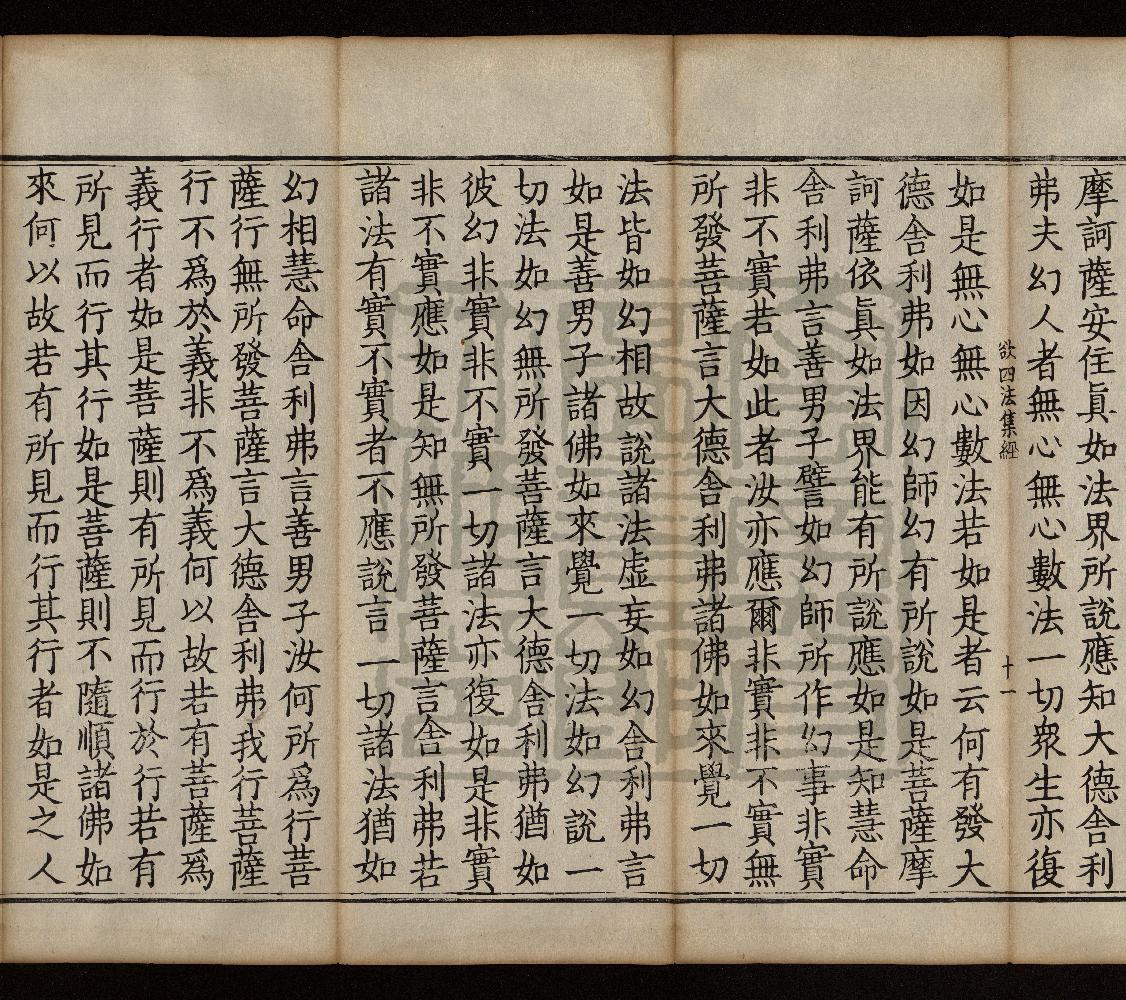 摩訶薩安住真如法界所說應知大德舍利
弗夫幻人者無心無心數法一切眾生亦復
欲四法集經 十一
如是無心無心數法若如是者云何有發大
德舍利弗如因幻師幻有所說如是菩薩摩
訶薩依真如法界能有所說應如是知慧命
舍利弗言善男子譬如幻師所作幻事非實
非不實若如此者汝亦應爾非實非不實無
所發菩薩言大德舍利弗諸佛如來覺一切
法皆如幻相故說諸法虛妄如幻舍利弗言
如是善男子諸佛如來覺一切法如幻說一
切法如幻無所發菩薩言大德舍利弗猶如
彼幻非實非不實一切諸法亦復如是非實
非不實應如是知無所發菩薩言舍利弗若
諸法有實不實者不應說言一切諸法猶如
幻相慧命舍利弗言善男子汝何所為行菩
薩行無所發菩薩言大德舍利弗我行菩薩
行不為於義非不為義何以故若有菩薩為
義行者如是菩薩則有所見而行於行若有
所見而行其行如是菩薩則不隨順諸佛如
來何以故若有所見而行其行者如是之人